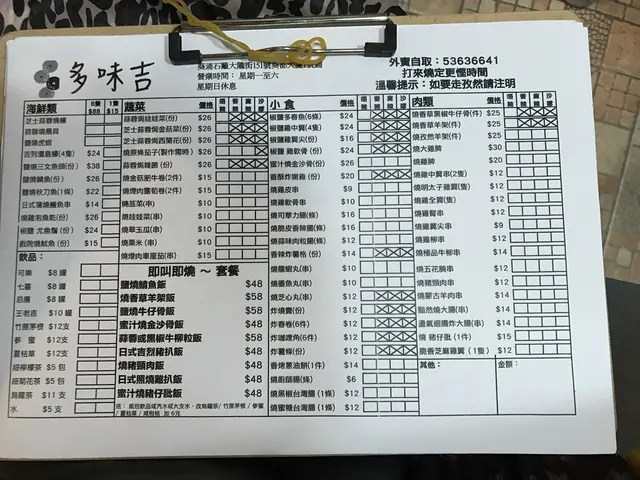 多味吉
葵涌石籬大隴街151號葵
營業時間： 星期一至六
星期日休息
外賣自取：53636641
打來燒定更慳時間
溫馨提示：如要走孜然請注明
海鮮類 6隻 $88 1隻 $15
芝士蒜蓉燒蠔
蒜蓉燒扇貝
鹽燒虎蝦
吉列廣島蠔(4隻) $24
鹽燒三文魚頭(份) $38
鹽燒鯖魚(份) $26
鹽燒秋刀魚(1條) $22
日式蒲燒鰻魚串 $14
燒雞泡魚乾(份) $26
椒鹽 尤魚鬚 (份) $24
戲院燒魷魚(份) $15
飲品：
可樂 $8 罐
七喜 $8 罐
忌廉 $8 罐
王老吉 $10 罐
竹蔗茅根 $12支
參 蜜 $12 支
夏枯草 $12 支
紙檸檬茶 $5 包
紙菊花茶 $5 包
烏龍茶 $11 支
水 $5 支
蔬菜 價格 唔辣 小辣 中辣 大辣
蒜蓉焗娃娃菜(份) $26
芝士蒜蓉焗金菇菜(份) $26
芝士蒜蓉焗西蘭花(份) $26
蒜蓉焗雜菌 (份) $26
燒金菇肥牛卷(2件) $15
燒煙肉露筍卷(2件) $15
燒韮菜(串) $10
燒娃娃菜(串) $10
燒翠玉瓜(串) $10
燒粟米 (串) $10
燒煙肉車厘茄(串) $15
即叫即燒 ～ 套餐
鹽燒鯖魚飯 $48
燒香草羊架飯 $58
鹽燒牛仔骨飯 $58
蜜汁燒金沙骨飯 $48
蒜蓉或黑椒牛柳粒飯 $58
日式吉烈豬扒飯 $48
燒豬頸肉飯 $48
日式照燒雞扒飯 $48
蜜汁燒豬仔扒飯 $48
小食 價格
椒鹽多春魚(6條) $24
椒鹽雞中翼(4隻) $24
椒鹽雞翼尖(份) $16
椒鹽 雞軟骨 (份) $24
蜜汁燒金沙骨(份) $26
香酥炸雞翅 (份) $20
燒雞皮串 $9
燒雞軟骨串 $10
燒司華力腸(條) $16
燒脆皮香辣腸(條) $16
燒蒜味肉粒腸(條) $12
香辣炸薯格 (份) $14
燒龍蝦丸(串) $10
燒墨魚丸(串) $10
燒芝心丸(串) $12
炸燒賣(份) $12
炸春卷(6件) $12
炸咖喱角(6件) $12
炸薯條(份) $12
香烤蔥油餅(1件 $14
燒廚師腸(條) $6
燒黑椒台灣腸(1條) $12
燒蜜糖台灣腸 (1條) $12
肉類 價格
燒香草黑椒牛仔骨(件) $25
燒香草羊架(件) $25
燒孜然羊架(件) $25
燒大雞髀 $30
燒雞髀 $20
燒雞中翼串(2隻) $14
燒明太子雞翼(隻) $15
燒雞全翼(隻) $12
燒雞腎串 $12
燒雞翼尖串 $9
燒雞柳串 $12
燒極品牛柳串 $14
燒五花腩串 $12
燒豬頸肉串 $12
燒蒙古羊肉串 $14
黯然燒大腸(串) $14
盪氣迴腸炸大腸(串) $14
燒 豬仔扒 (1件) $15
脆香芝麻雞翼 (1隻) $12
其他：
金額：